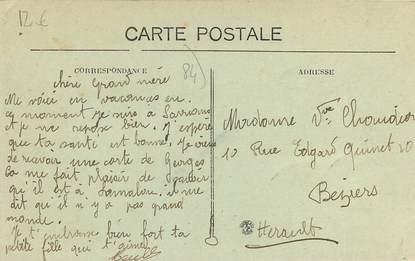 CARTE POSTALE
CORRESPONDANCE
84
ADRESSE
chère Grand mère
Me voici en vacances en
ce moment je suis à Sarrians
et je me repose bien. J'espère
que ta santé est bonne. Je viens
de recevoir une carte de Georges
ça me fait plaisir de savoir
qu'il est à Lamalou il me
dit qu'il n'y a pas grand
monde.
Je t'embrasse bien fort ta
petite fille qui t'aime
Madame Vve
10 Rue Edgard Quinet 10
Béziers
Hérault